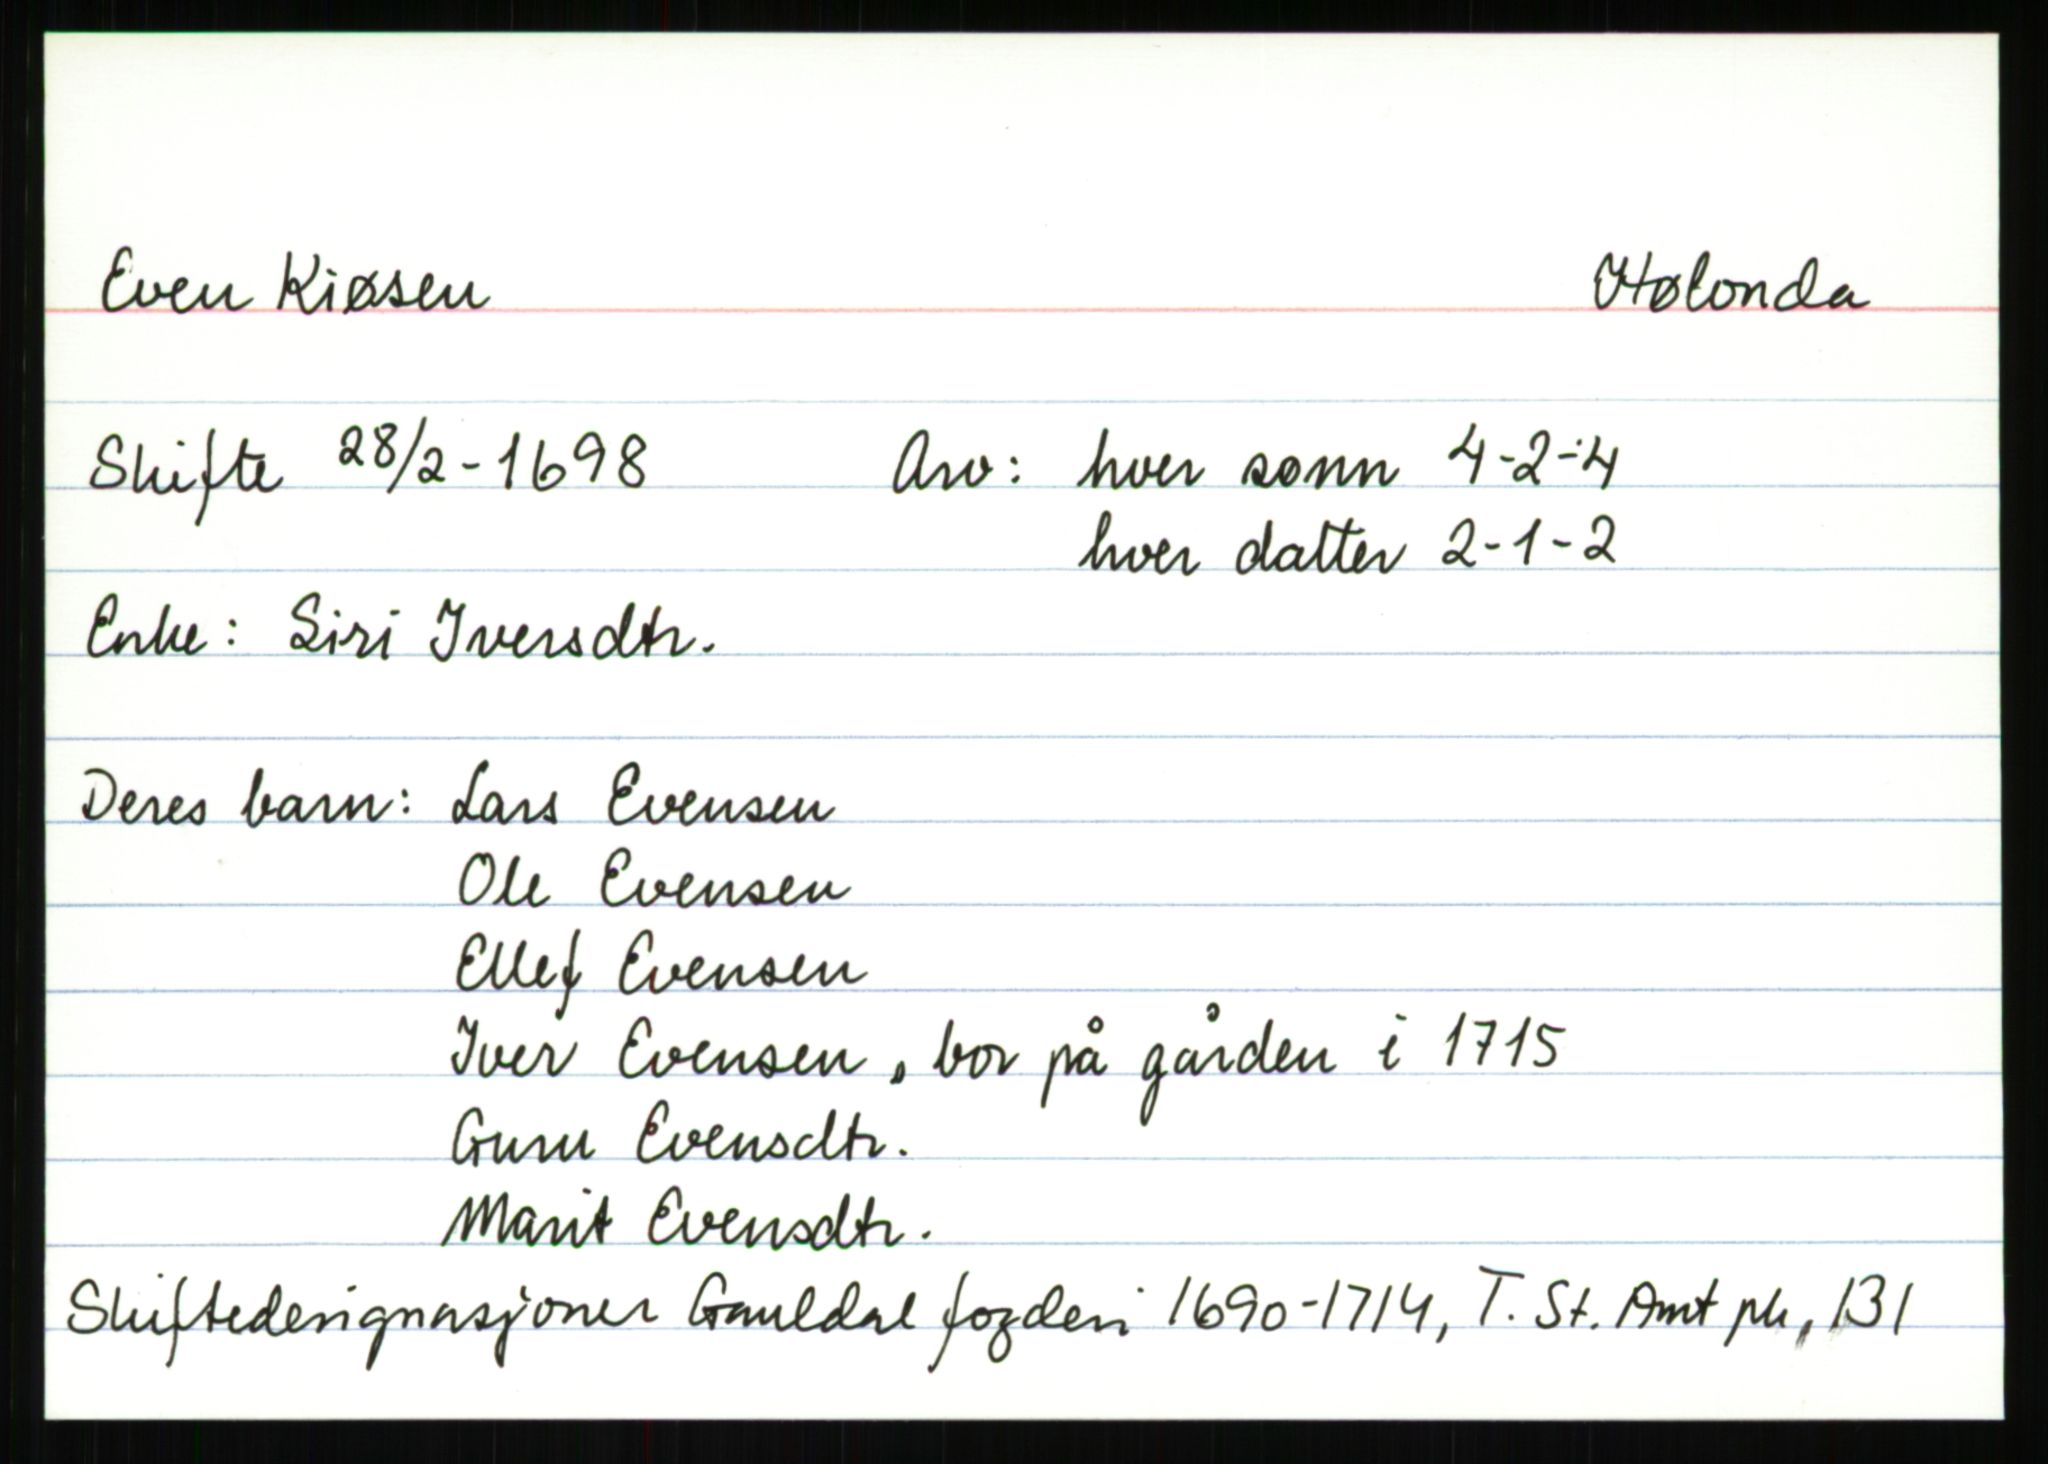 Even Kiøsen Hølonda
Skifte 28/2-1698 Arv: hver sønn 4-2-4
hver datter 2-1-2
Enke: Siri Iversdtr.
Deres barn: Lars Evensen
Ole Evensen
Ellef Evensen
Iver Evensen, bor på gården i 1715
Guru Evensdtr.
Marit Evensdtr.
Skiftedesignasjoner Gauldal fogderi 1690-1714, T. St. Amt pk, 131